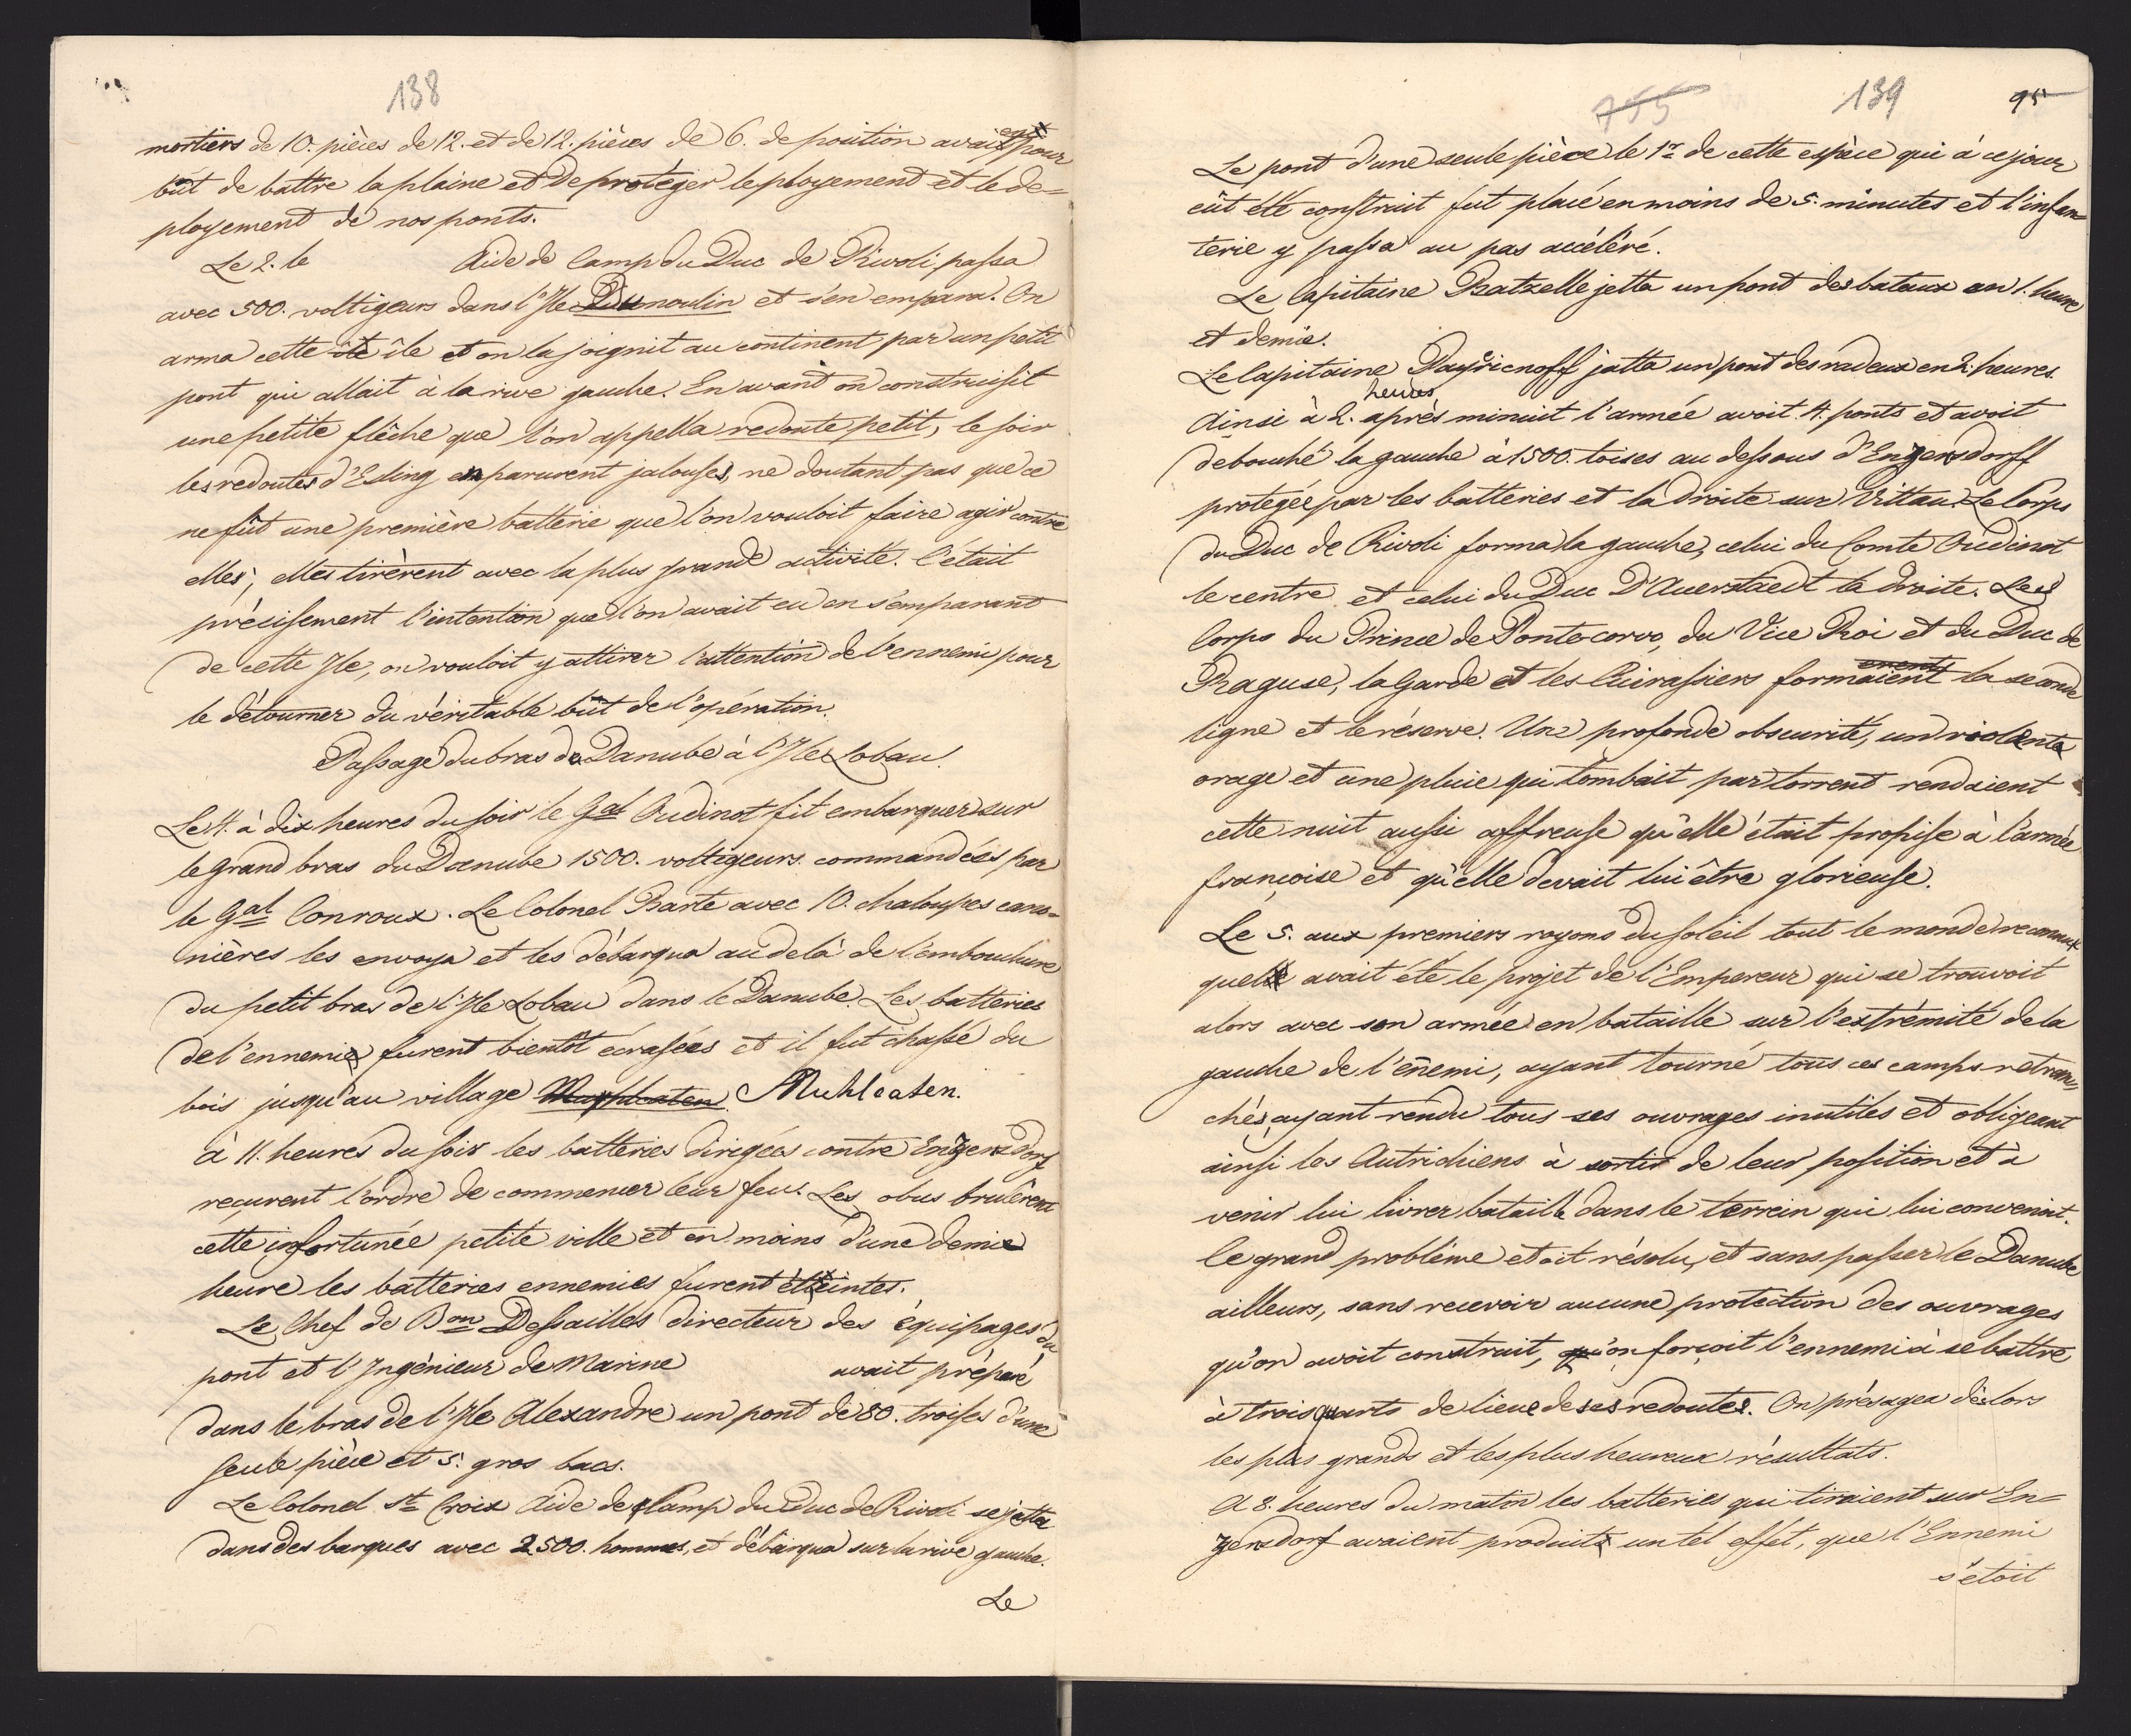 138
mortiers de 10. pièces de 12. et de 12. pièces de 6. de position avait pour
bût de battre la plaine et de protéger le ployement et le dé=
ployement de nos ponts.
Le 2. le Aide de Camp du Duc de Rivoli passa
avec 500. voltigeurs dans l'Ile Dumoulin et s'en empara. On
arma cette île et on la joignit au continent par un petit
pont qui allait à la rive gauche. En avant on construisit
une petite flêche que l'on appella redoute petit, le soir
les redoutes d'Esling en parurent jalouses, ne doutant pas que ce
ne fût une première batterie que l'on vouloit faire agir contre
elles; elles tirèrent avec la plus grande activité. C'était
précisement l'intention que l'on avait eu en s'emparant
de cette Ile, on vouloit y attirer l'attention de l'ennemi pour
le détourner du véritable bût de l'opération.
Passage du bras de Danube à l'Ile Lobau.
Le 4. à dix heures du soir le Gal Oudinot fit embarquer sur
le grand bras du Danube 1500. voltigeurs commandées par
le Gal Conroux. Le Colonel Barte avec 10. chaloupes cano=
nières les envoya et les débarqua au delà de l'embouchure
du petit bras de l'Ile Lobau dans le Danube. Les batteries
de l'ennemie furent bientôt écrasées et il fut chassé du
bois jusqu'au village Muhleaten.
à 11. heures du soir les batteries dirigées contre Enzersdorf
reçurent l'ordre de commencer leur feu. Les obus brulèrent
cette infortunée petite ville et en moins d'une demie
heure les batteries ennemies furent éteintes.
Le Chef de Bon Dessailles directeur des équipages du
pont et l'Ingénieur de Marine avait préparé
dans le bras de l'Ile Alexandre un pont de 80. troises d'une
seule pièce et 5. gros bacs.
Le Colonel Ste Croix Aide de Camp du Duc de Rivoli se jetta
dans des barques avec 2500. hommes, et débarqua sur la rive gauche.
Le
755 139 95
Le pont d'une seule pièce le 1r de cette espèce qui à ce jour
eût été construit fut placé en moins de 5. minutes et l'infan
terie y passa au pas accéléré.
Le Capitaine Bazelle jetta un pont des bateaux en 1. heure
et demie.
Le Capitaine Payrienoff jatta un pont des radeux en 2. heures.
heures
Ainsi à 2. après minuit l'armée avoit 4. ponts et avoit
debouché la gauche à 1500. toises au dessous d'Enzersdorff
protégée par les batteries et la droite sur Vittau. Le Corps
du Duc de Rivoli forma la gauche, celui du Comte Oudinot
le centre et celui du Duc D'Auerstaedt la droite. Les
Corps du Prince de Pontecorvo, du Vice Roi et du Duc de
Raguse, la Garde et les Cuirassiers formaient la seconde
ligne et le réserve. Une profonde obscurité, un violente
orage et une pluie qui tombait par torrent rendaient
cette nuit aussi affreuse qu'elle était propise à l'armée
françoise et qu'elle devait lui être glorieuse.
Le 5. aux premiers rayons du soleil tout le monde reconnut
quel avait été le projet de l'Empereur qui se trouvoit
alors avec son armée en bataille sur l'extrémité de la
gauche de l'ennemi, ayant tourné tous ces camps retran-
chés, ayant rendu tous ses ouvrages inutiles et obligeant
ainsi les Autrichiens à sortir de leur position et à
venir lui livrer bataille dans le terrein qui lui convenint.
le grand problème etoit résolu, et sans passer le Danube
ailleurs, sans recevoir aucune protection des ouvrages
qu'on avoit construit, qu'on forçoit l'ennemi à se battre
à trois quarts de lieue de ses redoutes. On présagea dès lors
les plus grands et les plus heureux résultats.
A 8. heures du matin les batteries qui tiraient sur En=
zersdorf avaient produits un tel effet, que l'Ennemi
s'étoit